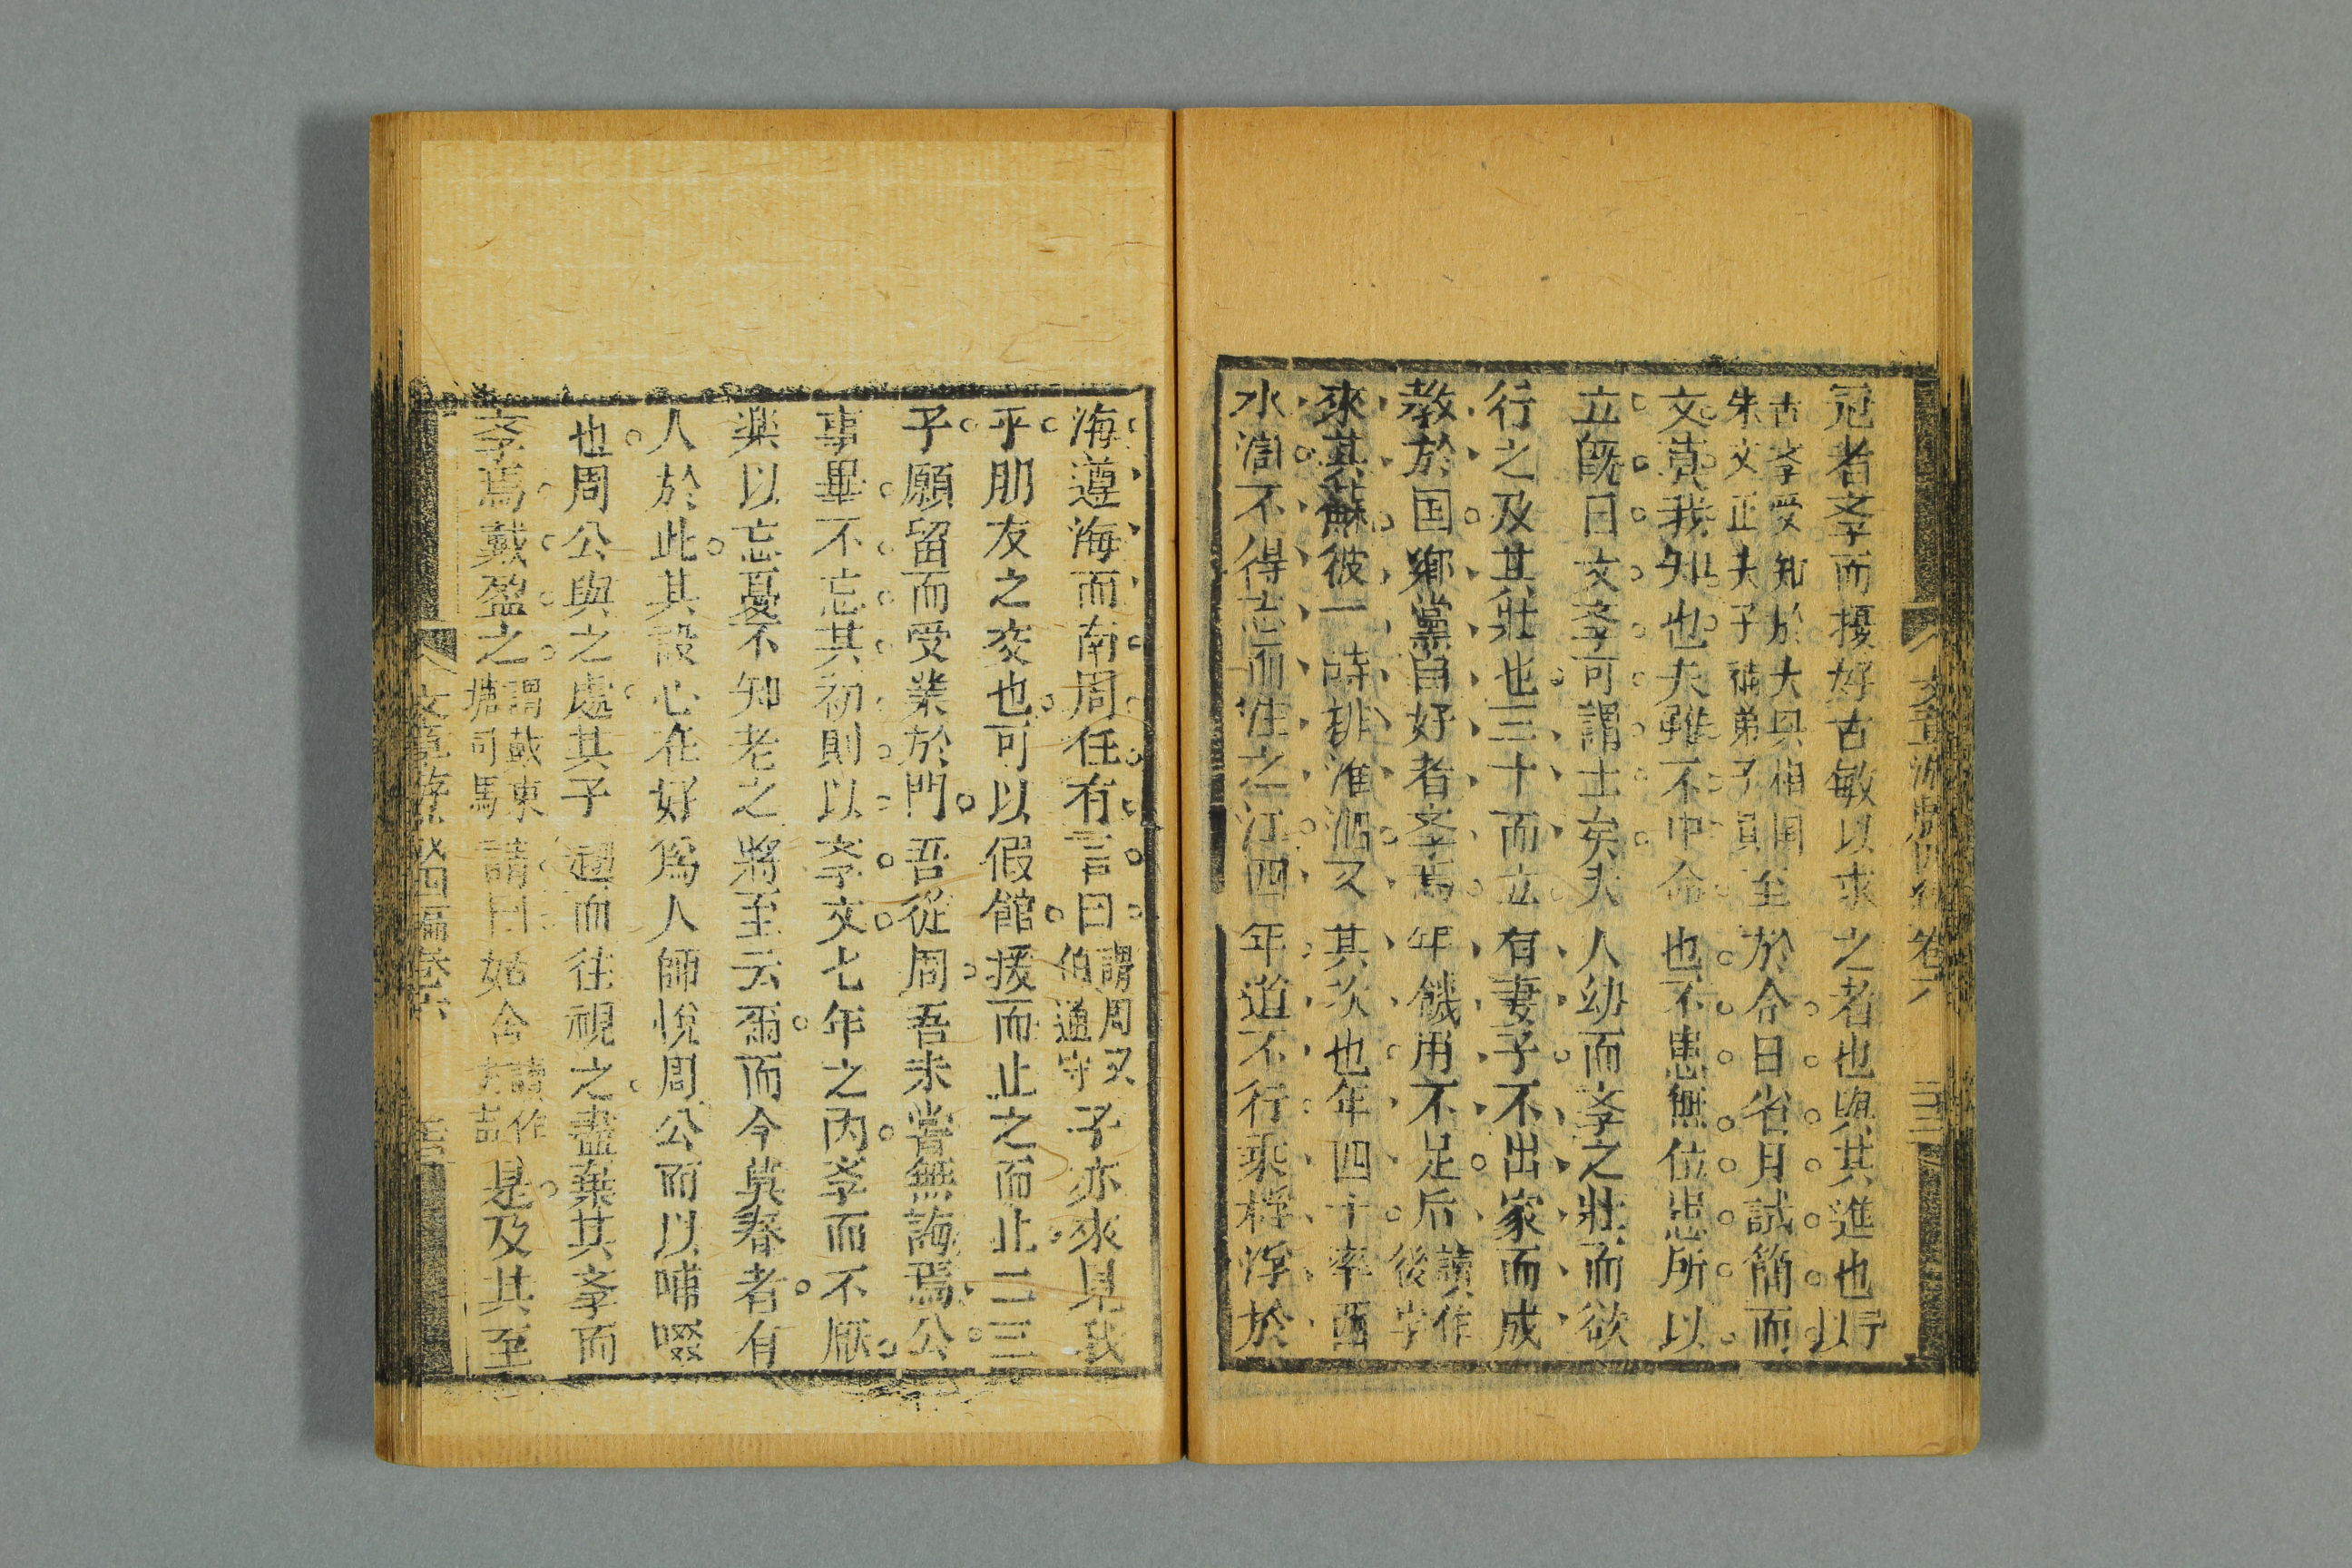 冠者斈而擾好古敏以求之者也與其進也以予
古斈受知於大與相国朱文正夫子補弟子員至於今日省月試簡而
文莫我知也夫雖不中命也不患無位患所以
立既曰文斈可謂士矣夫人幼而斈之壯而欲
行之及其壯也三十而立有妻子不出家而成
教於国鄉黨自好者斈焉年饑用不足后讀作後字
來其蘇彼一時排淮泗又其次也年四十率西
水滸不得志而往之江四年道不行乘桴浮於
卷六
海遵海而南周任有言曰謂周又伯通守子亦來見我
乎朋友之交也可以假館援而止之而止二三
子願留而受業於門吾從周吾未嘗無誨焉公
事畢不忘其初則以斈文七年之内斈而不厭
樂以忘憂不知老之將至云爾而今莫春者有
人於此其設心在好爲人師悅周公而以哺啜
也周公與之處其子趨而往視之盡棄其斈而
斈焉戴盈之謂戴東塘司馬請曰姑舍讀作是及其至